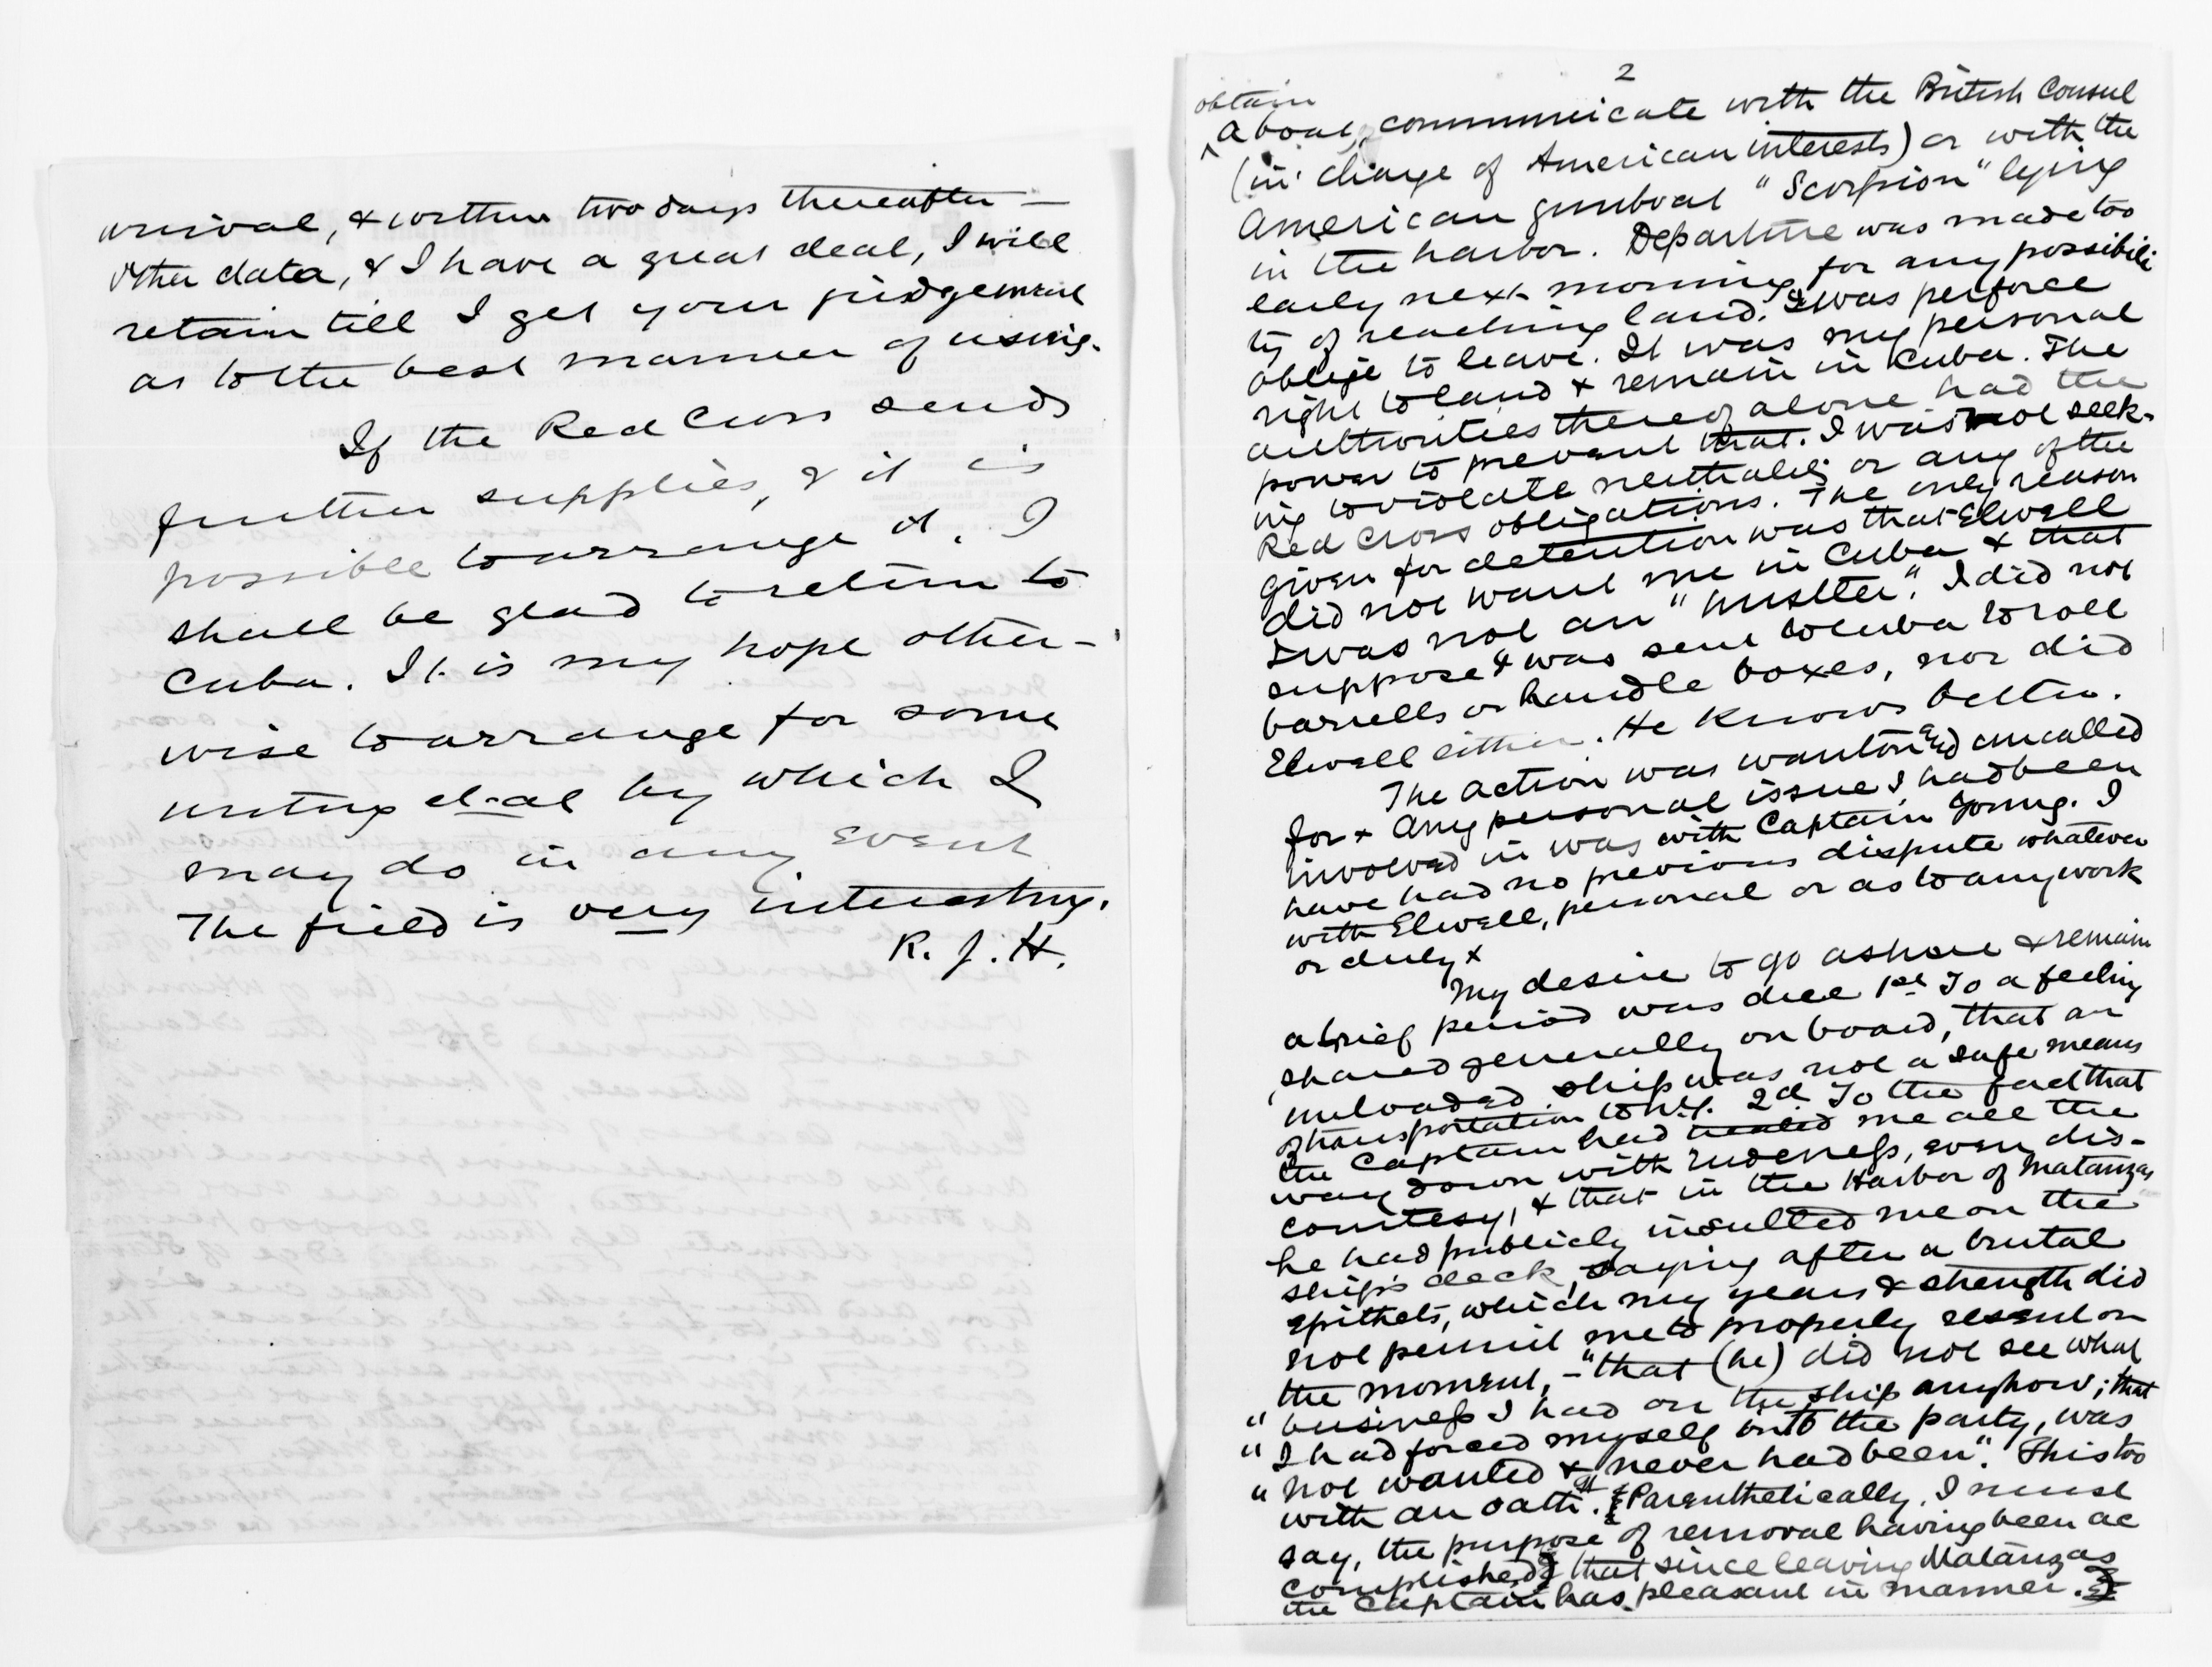 arrival, & within two days thereafter —
Other data, & I have a great deal, I will
retain till I get your judgement
as to the best manner of using.
If the Red Cross sends
further supplies, & it is
possible to arrange it, I
shall be glad to return to
Cuba. It is my hope other-
wise to arrange for some
writing deal by which I
may do in any event
The field is very interesting.
R. J. H.
2
obtain
a boat, communicate with the British Consul
(in charge of American interests) or with the
American gunboat "Scorpion" lying
in the harbor. Departure was made too
early next morning for any possibili
ty of reaching land. I was perforce
oblige to leave. It was my personal
right to land & remain in Cuba. The
authorities thereof alone had the
power to prevent that. I was not seek-
ing to violate neutrality or any of the
Red Cross obligations. The only reason
given for detention was that Elwell
did not want me in Cuba & that
I was not an "hustler". I did not
suppose I was sent to Cuba to roll
barrells or handle boxes, nor did
Elwell either. He knows better.
The action was wanton and uncalled
for & any personal issue I had been
involved in was with Captain Young. I
have had no previous dispute whatever
with Elwell, personal or as to any work
or duty &
My desire to go ashore & remain
a brief period was due 1st To a feeling
shared generally on board, that an
unloaded ship was not a safe means
of transportation to N.Y. 2d To the fact that
the Captain had treated me all the
way down with rudeness, even dis-
courtesy, & that in the Harbor of Matanzas
he had publicly insulted me on the
ship's deck, saying after a brutal
epithets, which my years & strength did
not permit me to properly resent on
the moment, – "that (he) did not see what
" business I had on the ship anyhow; that
" I had forced myself onto the party, was
" not wanted & never had been". This too
with an oath. Parenthetically, I must
say, the purpose of removal having been ac
complished that since leaving Matanzas
the Captain has pleasant in manner.